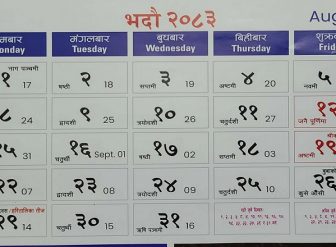 भदौ २०८३
Aug
मबार मंगलबार बुधबार बिहीबार शुक्र
onday Tuesday Wednesday Thursday Frid
नाग पञ्चमी
१ 17 षष्ठी २ 18 सप्तमी ३ 19 अष्टमी ४ 20 नवमी ५
८ 24 द्वादशी ९ 25 त्रयोदशी १० 26 चतुर्दशी ११ 27 जनै पूर्णिमा १२
१५ 31 चतुर्थी १६ Sept. 01 पञ्चमी १७ 02 सप्तमी १८ 03 अष्टमी १९
२२ 07 द्वादशी २३ 08 त्रयोदशी २४ 09 चतुर्दशी २५ 10 कुसे औंसी २६
हरितालिका तीज
२९ 14 चतुर्थी ३० 15 ऋषि पञ्चमी ३१ 16